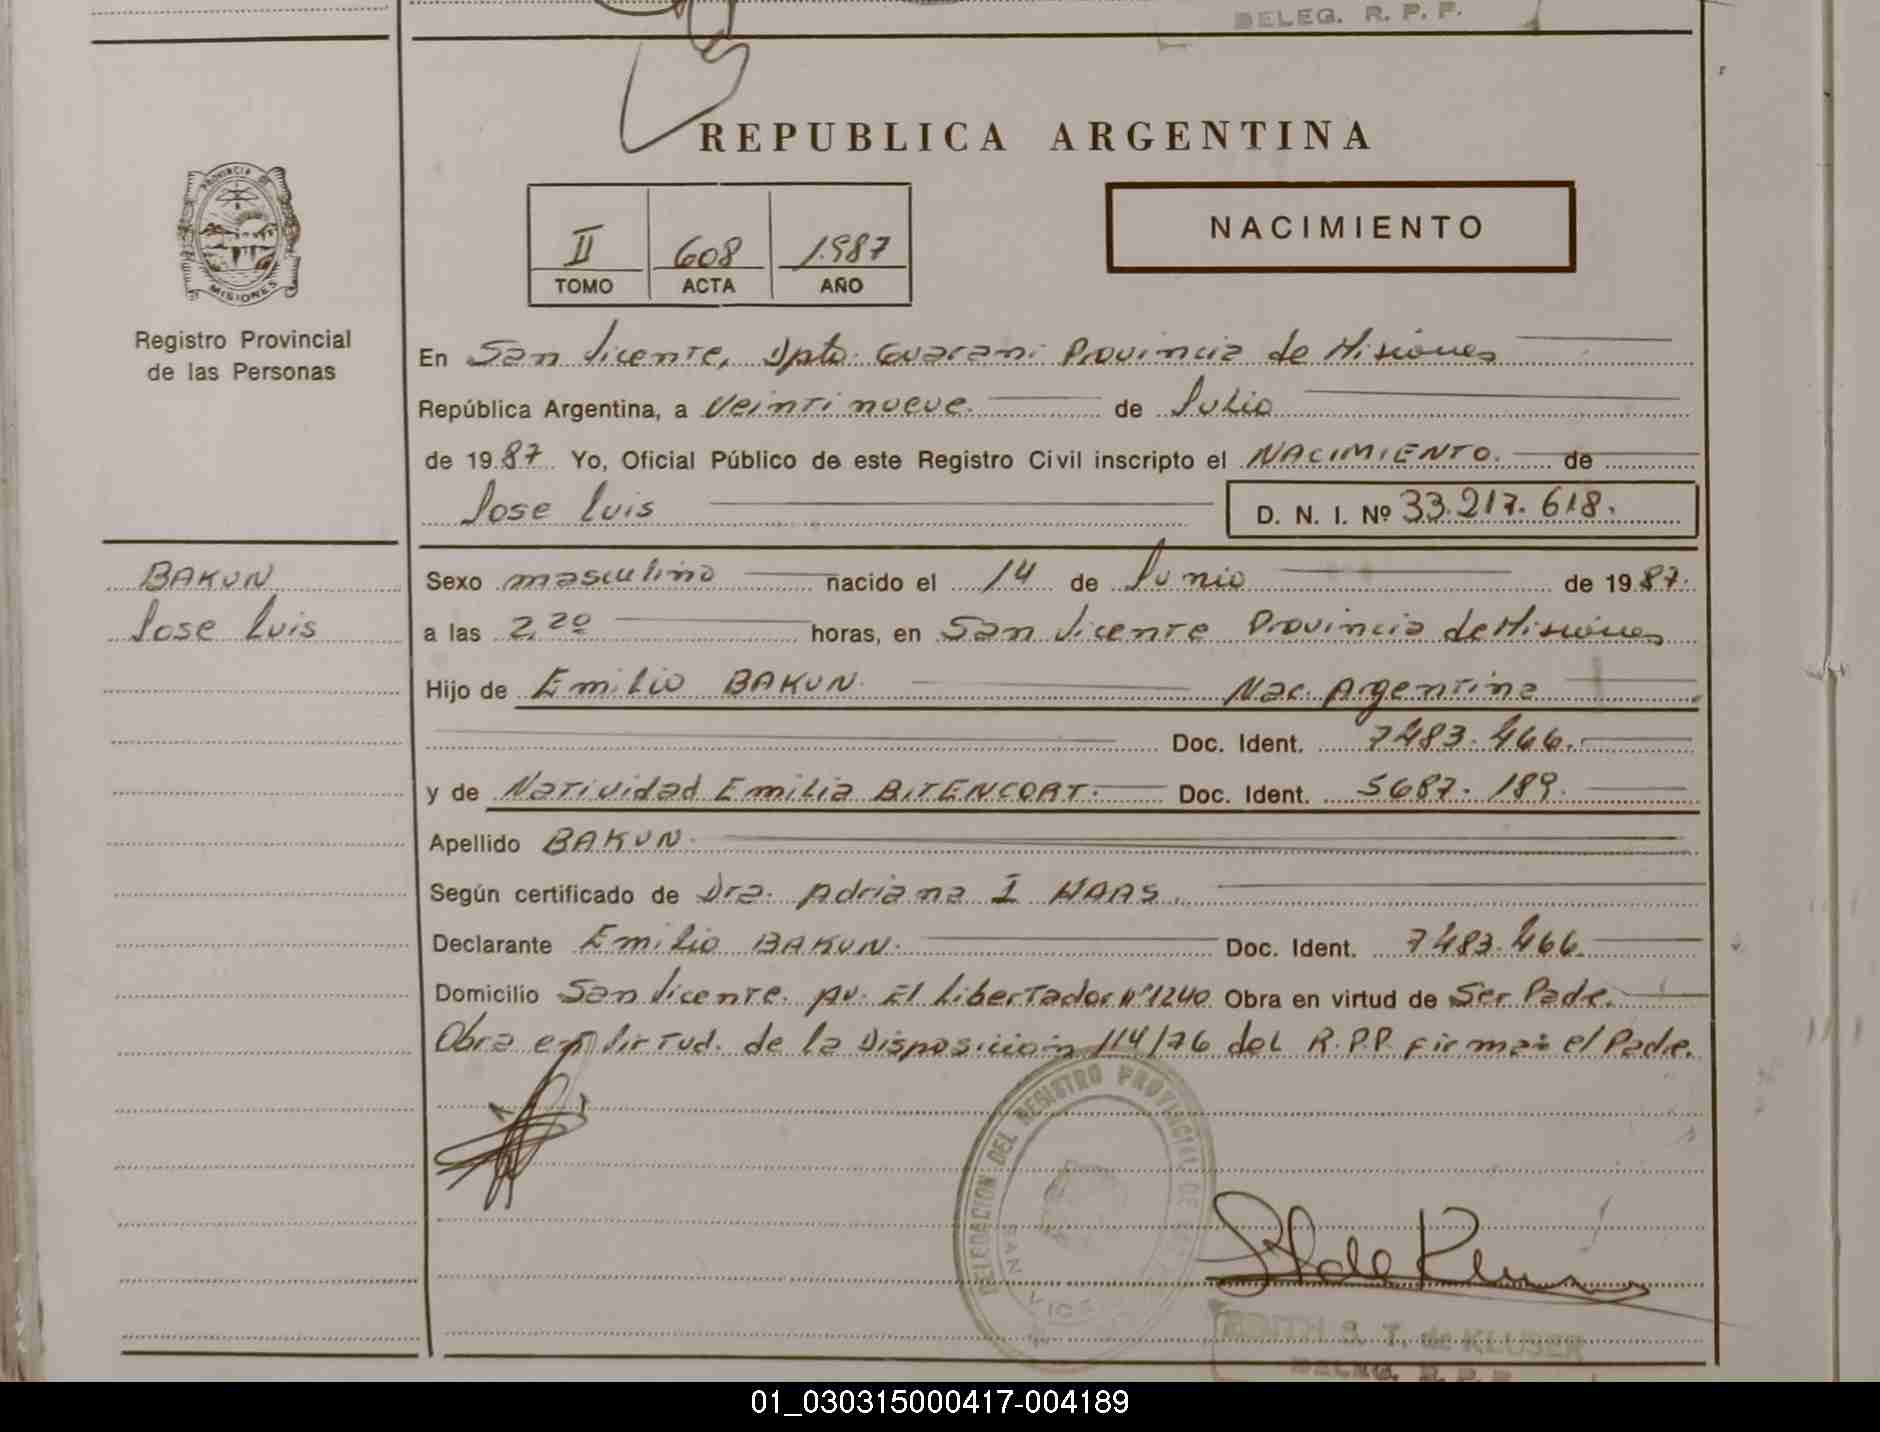 DELEG. R. P. P.
REPUBLICA ARGENTINA
PROVINCIA DE
MISIONES
Registro Provincial
de las Personas
II 608 1.987
TOMO ACTA AÑO
NACIMIENTO
En San Vicente, Dpto. Guarani Provincia de Misiones
República Argentina, a veintinueve de Julio
de 1987 Yo, Oficial Público de este Registro Civil inscripto el NACIMIENTO. de
Jose Luis D. N. I. Nº 33.217.618.
BAKUN
Jose Luis
Sexo masculino nacido el 14 de Junio de 1987.
a las 2,20 horas, en San Vicente Provincia de Misiones
Hijo de Emilio BAKUN. Nac. Argentina
Doc. Ident. 7483.466.
y de Natividad Emilia BITENCORT. Doc. Ident. 5687.189.
Apellido BAKUN.
Según certificado de Dra. Adriana I HAAS.
Declarante Emilio BAKUN. Doc. Ident. 7483.466.
Domicilio San Vicente. Av. El Libertador Nº1240 Obra en virtud de Ser Padre.
Obra en Virtud. de la Disposición 114/76 del R.P.P. firma el Padre.
DELEGACION DEL REGISTRO PROVINCIAL DE
SAN VICE
EDITH S. T. de KLUSER
DELEG. R. P. P.
01_030315000417-004189